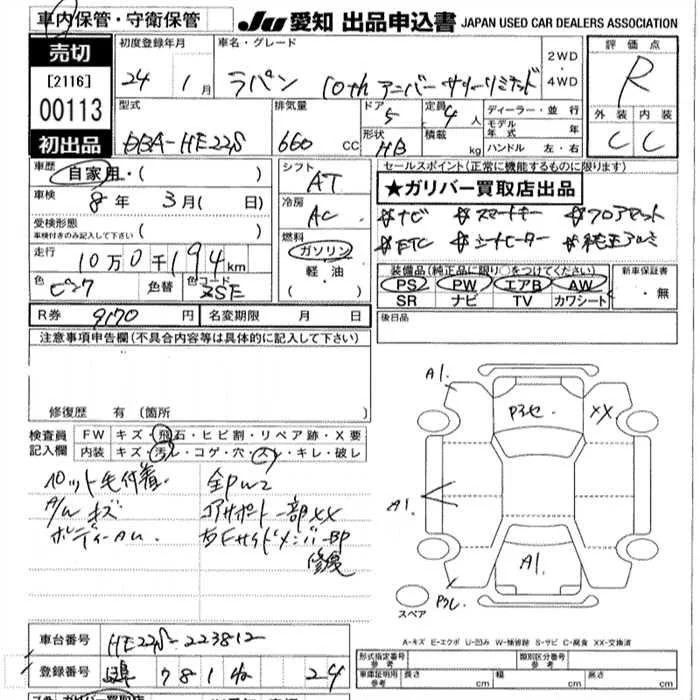 車内保管・守衛保管
JU 愛知 出品申込書 JAPAN USED CAR DEALERS ASSOCIATION
売切
[2116]
00113
初出品
初度登録年月
24 年 1月
車名・グレード
ラパン 10th アニバーサリーリミテッド
2WD
・
4WD
評価点
R
外装 内装
C C
型式
DBA-HE22S
排気量
660 CC
ドア
5
形状
HB
定員
4人
積載
kg
ディーラー・並行
モデル年式 年
ハンドル 左・右
車歴
自家用・( )
車検
8年 3月( 日)
受検形態
車検付きのみ記入して下さい
( )
走行
10万0千194km
色
色替
色コード
ZSE
シフト
AT
冷房
AC
燃料
ガソリン
軽油
・
( )
セールスポイント(正常に機能するものに限ります)
★ガリバー買取店出品
#ナビ #スマートキー #フロアマット
#ETC #シートヒーター #純正アルミ
装備品(純正品に限り○をつけてください)
PS PW エアB AW
SR ナビ TV カワシート
新車保証書
・無
R券 9170円 名変期限 月 日
後日品
注意事項申告欄(不具合内容等は具体的に記入して下さい)
修復歴 有〔箇所
検査員
記入欄
FW キズ・飛石・ヒビ割・リペア跡・X要
内装 キズ・汚レ・コゲ・穴・スレ・キレ・破レ
A/Wキズ
コアサポート一部XX
右Fサイドメンバー
修復
A1.
XX
A1.
A1.
スペア
A-キズ E-エクボ U-凹み W-補修跡 S-サビ C-腐食 XX-交換済
車台番号 HE22S-223812
登録番号 781 24
形式指定番号
参考
類別区分番号
参考
車庫証明用
参考
長さ cm 幅 cm 高さ cm
ガリバー買取店